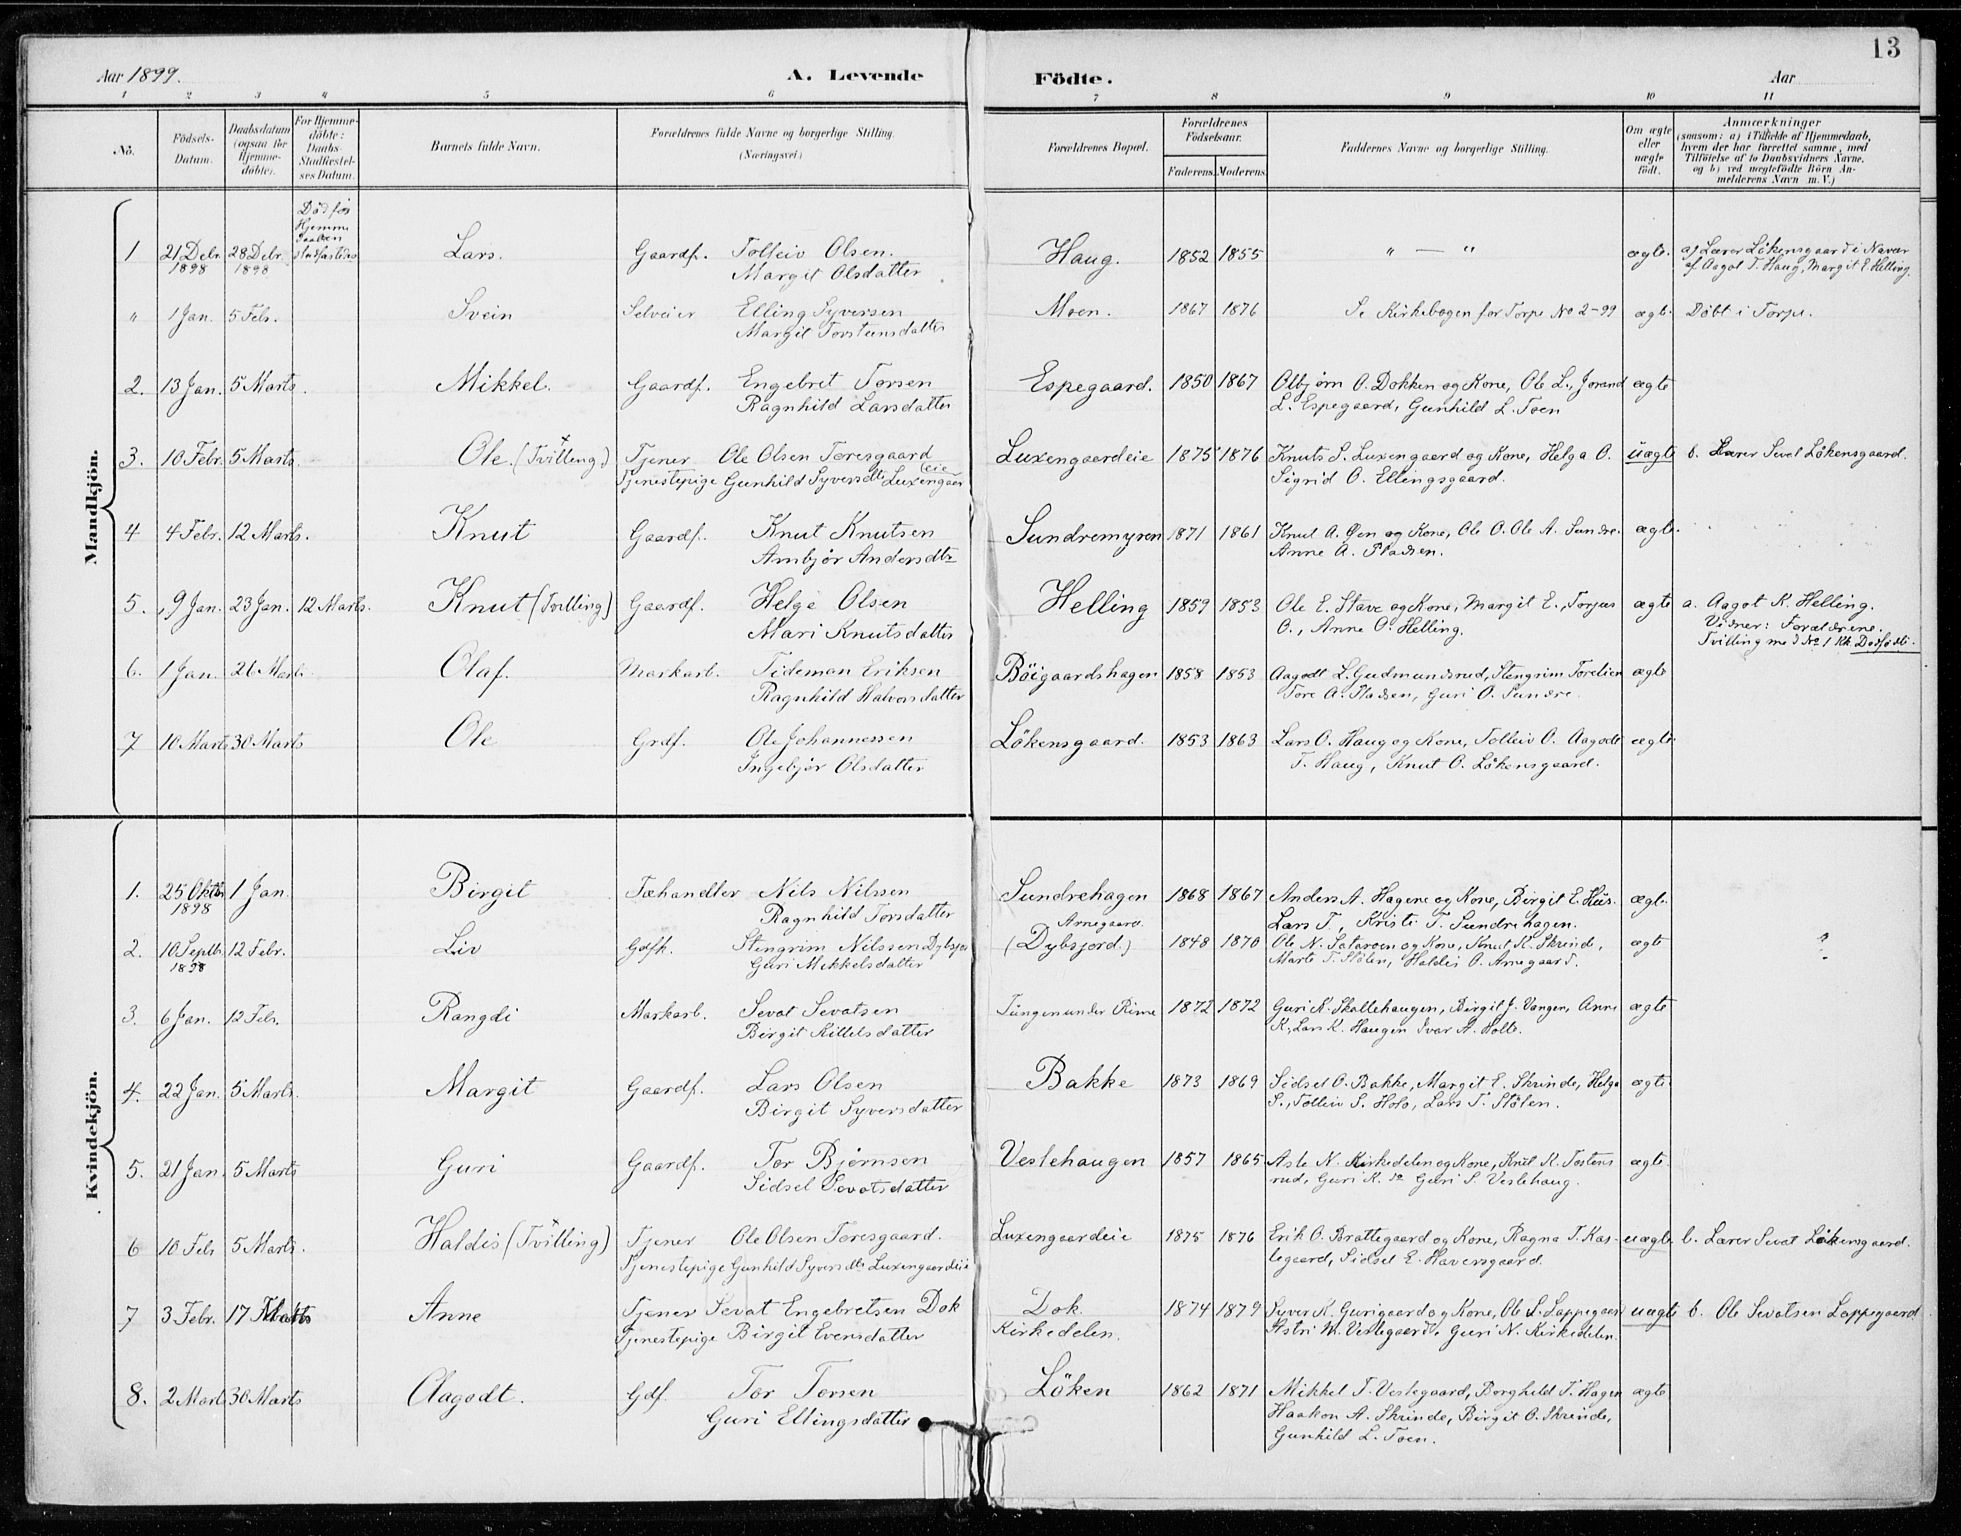 13
Aar 1899. A. Levende Födte. Aar
1 2 3 4 5 6 7 8 9 10 11
No. Födsels-Datum. Daabsdatum (ogsaa for Hjemme-døbte). For Hjemme-døbte: Daabs-Stadfæstelses Datum. Barnets fulde Navn. Forældrenes fulde Navne og borgerlige Stilling. (Næringsvei) Forældrenes Bopæl. Forældrenes Födselsaar. Faderens. Moderens. Faddernes Navne og borgerlige Stilling. Om ægte eller uægte født. Anmærkninger (saasom: a) i Tilfælde af Hjemmedaab, hvem der har forrettet samme, med Tilföielse af to Daabsvidners Navne, og b) ved uægtefödte Börn Anmelderens Navn m. V.)
Mandkjön.
Död før
Hjemme
daaben
stadfæstedes
1 21 Debr. 1898 28 Debr. 1898 Lars. Gaardf. Tolleiv Olsen. Haug. 1852 1855 " — " ægte. a) Lærer Lökensgaard i Nærvær
Margit Olsdatter af Aagot T. Haug, Margit E. Helling.
" 1 Jan. 5 Febr. Svein Selveier Elling Syversen Moen. 1867 1876 Se Kirkebogen for Torpe No 2-99 ægte. Döbt i Torpe.
Margit Torsteinsdatter
2. 13 Jan. 5 Marts. Mikkel. Gaardf. Engebret Torsen Espegaard. 1850 1867 Olbjørn O. Dokken og Kone, Ole L., Jorand ægte
Ragnhild Larsdatter L. Espegaard, Gunhild L. Toen
3. 10 Febr. 5 Marts. Ole. (Tvilling.) Tjener Ole Olsen Toresgaard Luxengaardeie 1875 1876 Knut S. Luxengaard og Kone, Helga O. uægte b. Lærer Sevat Lökensgaard.
Tjenestepige Gunhild Syversdtr Luxengaardeie Sigrid O. Ellingsgaard.
4 4 Febr. 12 Marts. Knut Gaardf. Knut Knutsen Sundremyren 1871 1861 Knut A. Øen og Kone, Ole O. Ole A. Sundre. ægte.
Ambjør Andersdtr Anne A. Pladsen.
5. 9 Jan. 23 Jan. 12 Marts. Knut (Tvilling) Gaardf. Helge Olsen Helling 1859 1853 Ole E. Stave og Kone, Margit E., Torjus ægte a. Aagot K. Helling.
Mari Knutsdatter O., Anne O. Helling. Vidner: Forældrene.
Tvilling med No 1 Kk Dødfødte.
6. 1 Jan. 26 Marts. Olaf. Markarb. Tideman Eriksen Böigaardshagen 1858 1853 Aagodt L. Gudmundsrud, Stengrim Torelien ægte
Ragnhild Halvorsdatter Tore A. Pladsen, Guri O. Sundre.
7 10 Marts 30 Marts Ole Grdf. Ole Johannessen Lökensgaard. 1853 1863 Lars O. Haug og Kone, Tolleiv O. Aagodt ægte.
Ingebjør Olsdatter T. Haug, Knut O. Lökensgaard.
Kvindekjön.
1. 25 Oktbr. 1898 1 Jan. Birgit Fæhandler Nils Nilssen Sundrehagen 1868 1867 Anders A. Hagene og Kone, Birgit E. Hus. ægte.
Ragnhild Torsdatter Lars T., Kristi T. Sundrehagen.
Arnegaard
2. 10 Septbr. 1898 12 Febr. Liv Gdfk. Stengrim Nilssen Dybsjord (Dybsjord.) 1848 1870 Ole N. Sataroen og Kone, Knut K. Skrinde, ægte "
Guri Mikkelsdatter Marte T. Stölen, Haldis O. Arnegaard.
3. 6 Jan. 12 Febr. Rangdi Markarb. Sevat Sevatsen Tungen under Rime 1872 1872 Guri K. Skallehaugen, Birgit J. Vangen, Anne ægte
Birgit Kittelsdatter K., Lars K. Haugen Ivar A. Holte.
4. 22 Jan. 5 Marts. Margit Gaardf. Lars Olsen Bakke 1873 1869 Sidsel O. Bakke, Margit E. Skrinde, Helga ægte.
Birgit Syversdatter S., Tolleiv S. Holo, Lars T. Stölen.
5. 21 Jan. 5 Marts Guri Gaardf. Tor Bjørnsen Veslehaugen 1857 1865 Asle N. Kirkedelen og Kone, Knut K. Tostens ægte.
Sidsel Sevatsdatter rud, Guri K. do Guri S. Veslehaug.
6 10 Febr 5 Marts. Haldis (Tvilling) Tjener Ole Olsen Toresgaard. Luxengaardeie 1875 1876 Erik O. Brattegaard og Kone, Ragna T. Kas- uægte b. Lærer Sevat Lökensgaard.
Tjenestepige Gunhild Syversdtr Luxengaardeie legaard, Sidsel E. Haversgaard.
7 3 Febr. 17 Marts Anne Tjener Sevat Engebretsen Dok Dok. 1874 1879 Syver K. Gurigaard og Kone, Ole S. Lappegaard uægte b. Ole Sevatsen Lappegaard
Tjenestepige Birgit Evensdatter Kirkedelen. Astri M. Veslegaard, Guri N. Kirkedelen.
8. 2 Marts 30 Marts Aagodt. Gdf. Tor Torsen Löken 1862 1871 Mikkel T. Veslegaard, Borghild T. Hagen ægte
Guri Ellingsdatter Haakon A. Skrinde, Birgit O. Skrinde,
Gunhild L. Toen.